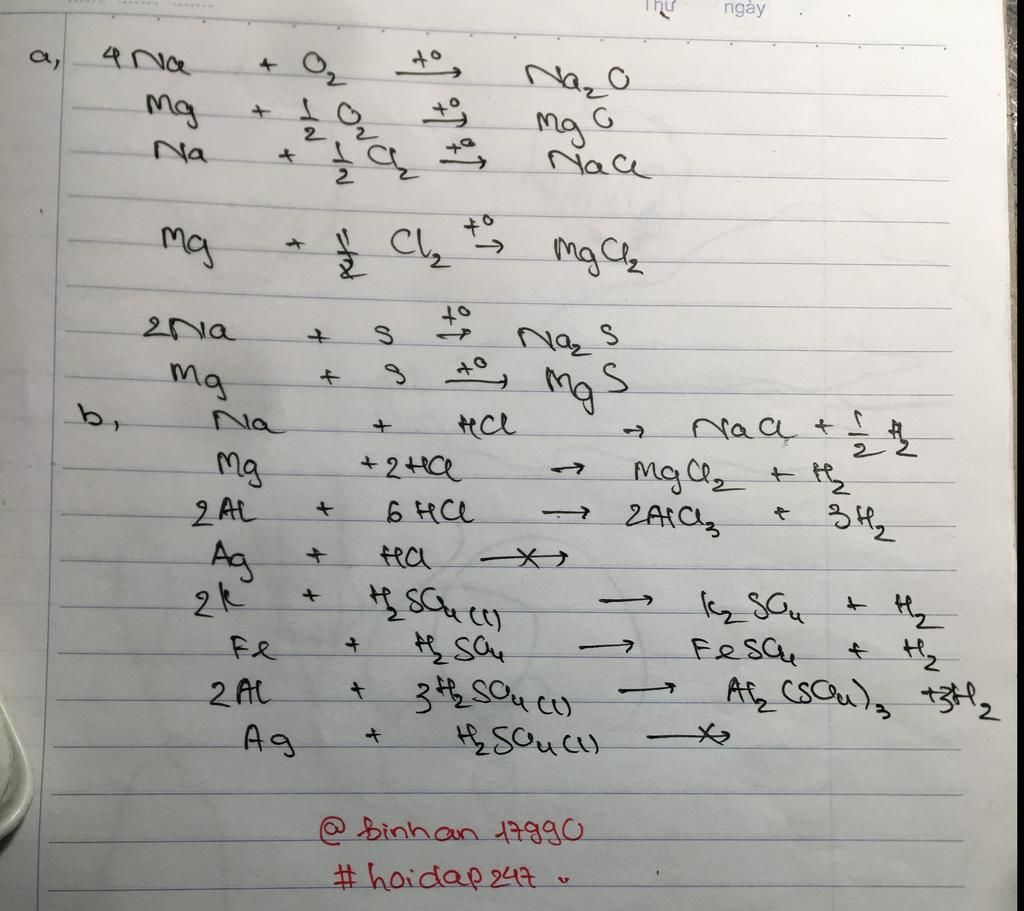 Thứ ngày
a, 4Na + O₂ –t°→ Na₂O
Mg + 1/2 O₂ –t°→ MgO
Na + 1/2 Cl₂ –t°→ NaCl
Mg + Cl₂ –t°→ MgCl₂
2Na + S –t°→ Na₂S
Mg + S –t°→ MgS
b, Na + HCl → NaCl + 1/2 H₂
Mg + 2HCl → MgCl₂ + H₂
2Al + 6HCl → 2AlCl₃ + 3H₂
Ag + HCl –×→
2K + H₂SO₄(l) → K₂SO₄ + H₂
Fe + H₂SO₄ → FeSO₄ + H₂
2Al + 3H₂SO₄(l) → Al₂(SO₄)₃ + 3H₂
Ag + H₂SO₄(l) –×→
@binhan17990
#hoidap247